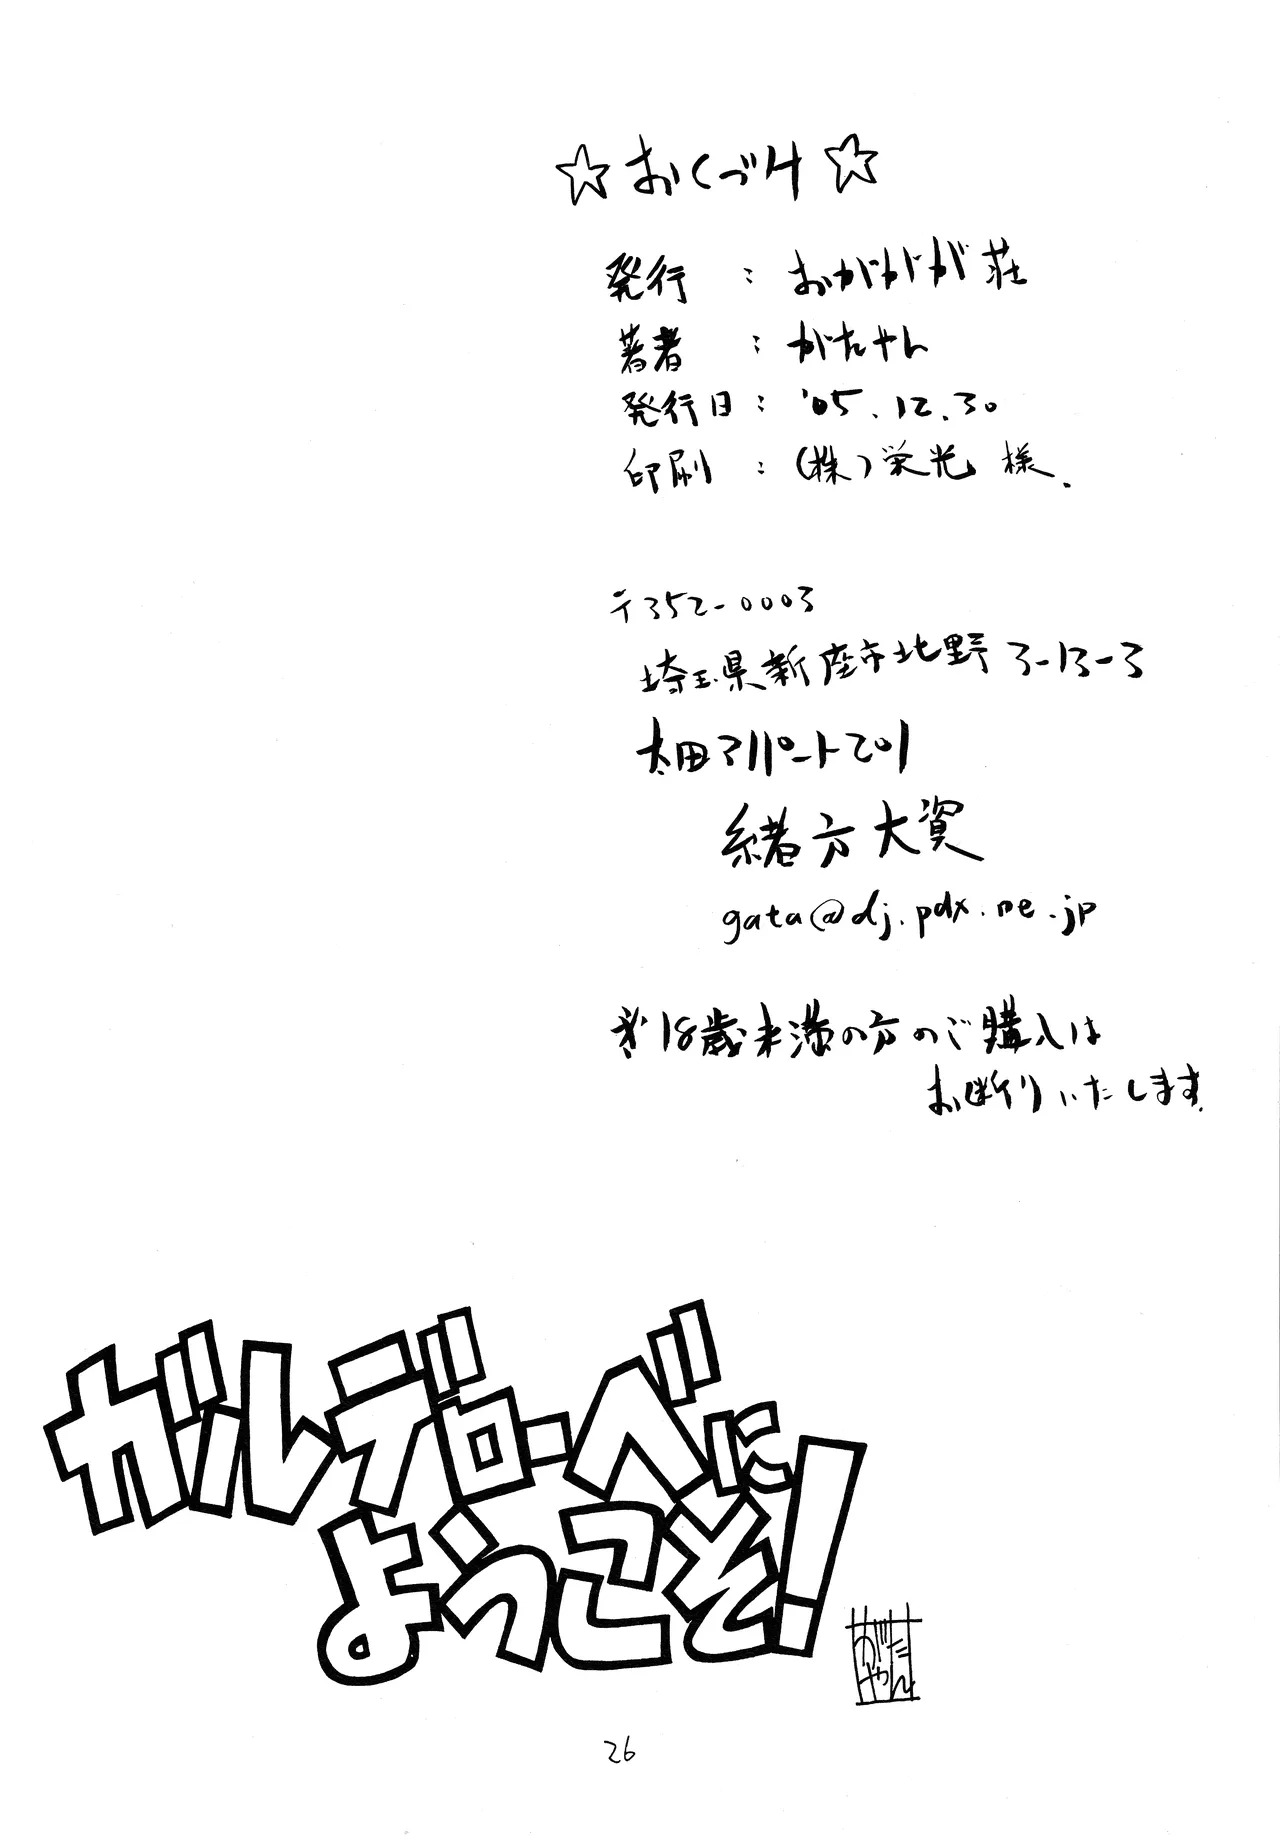 ☆おくづけ☆
発行 : おががが荘
著者 : がたやん
発行日 : '05.12.30
印刷 : (株)栄光 様.
〒352-0003
埼玉県新座市北野3-13-3
太田アパート201
緒方大資
gata@dj.pdx.ne.jp
※18歳未満の方のご購入は
お断りいたします.
ガルデローベに
ようこそ!
がたやん
26